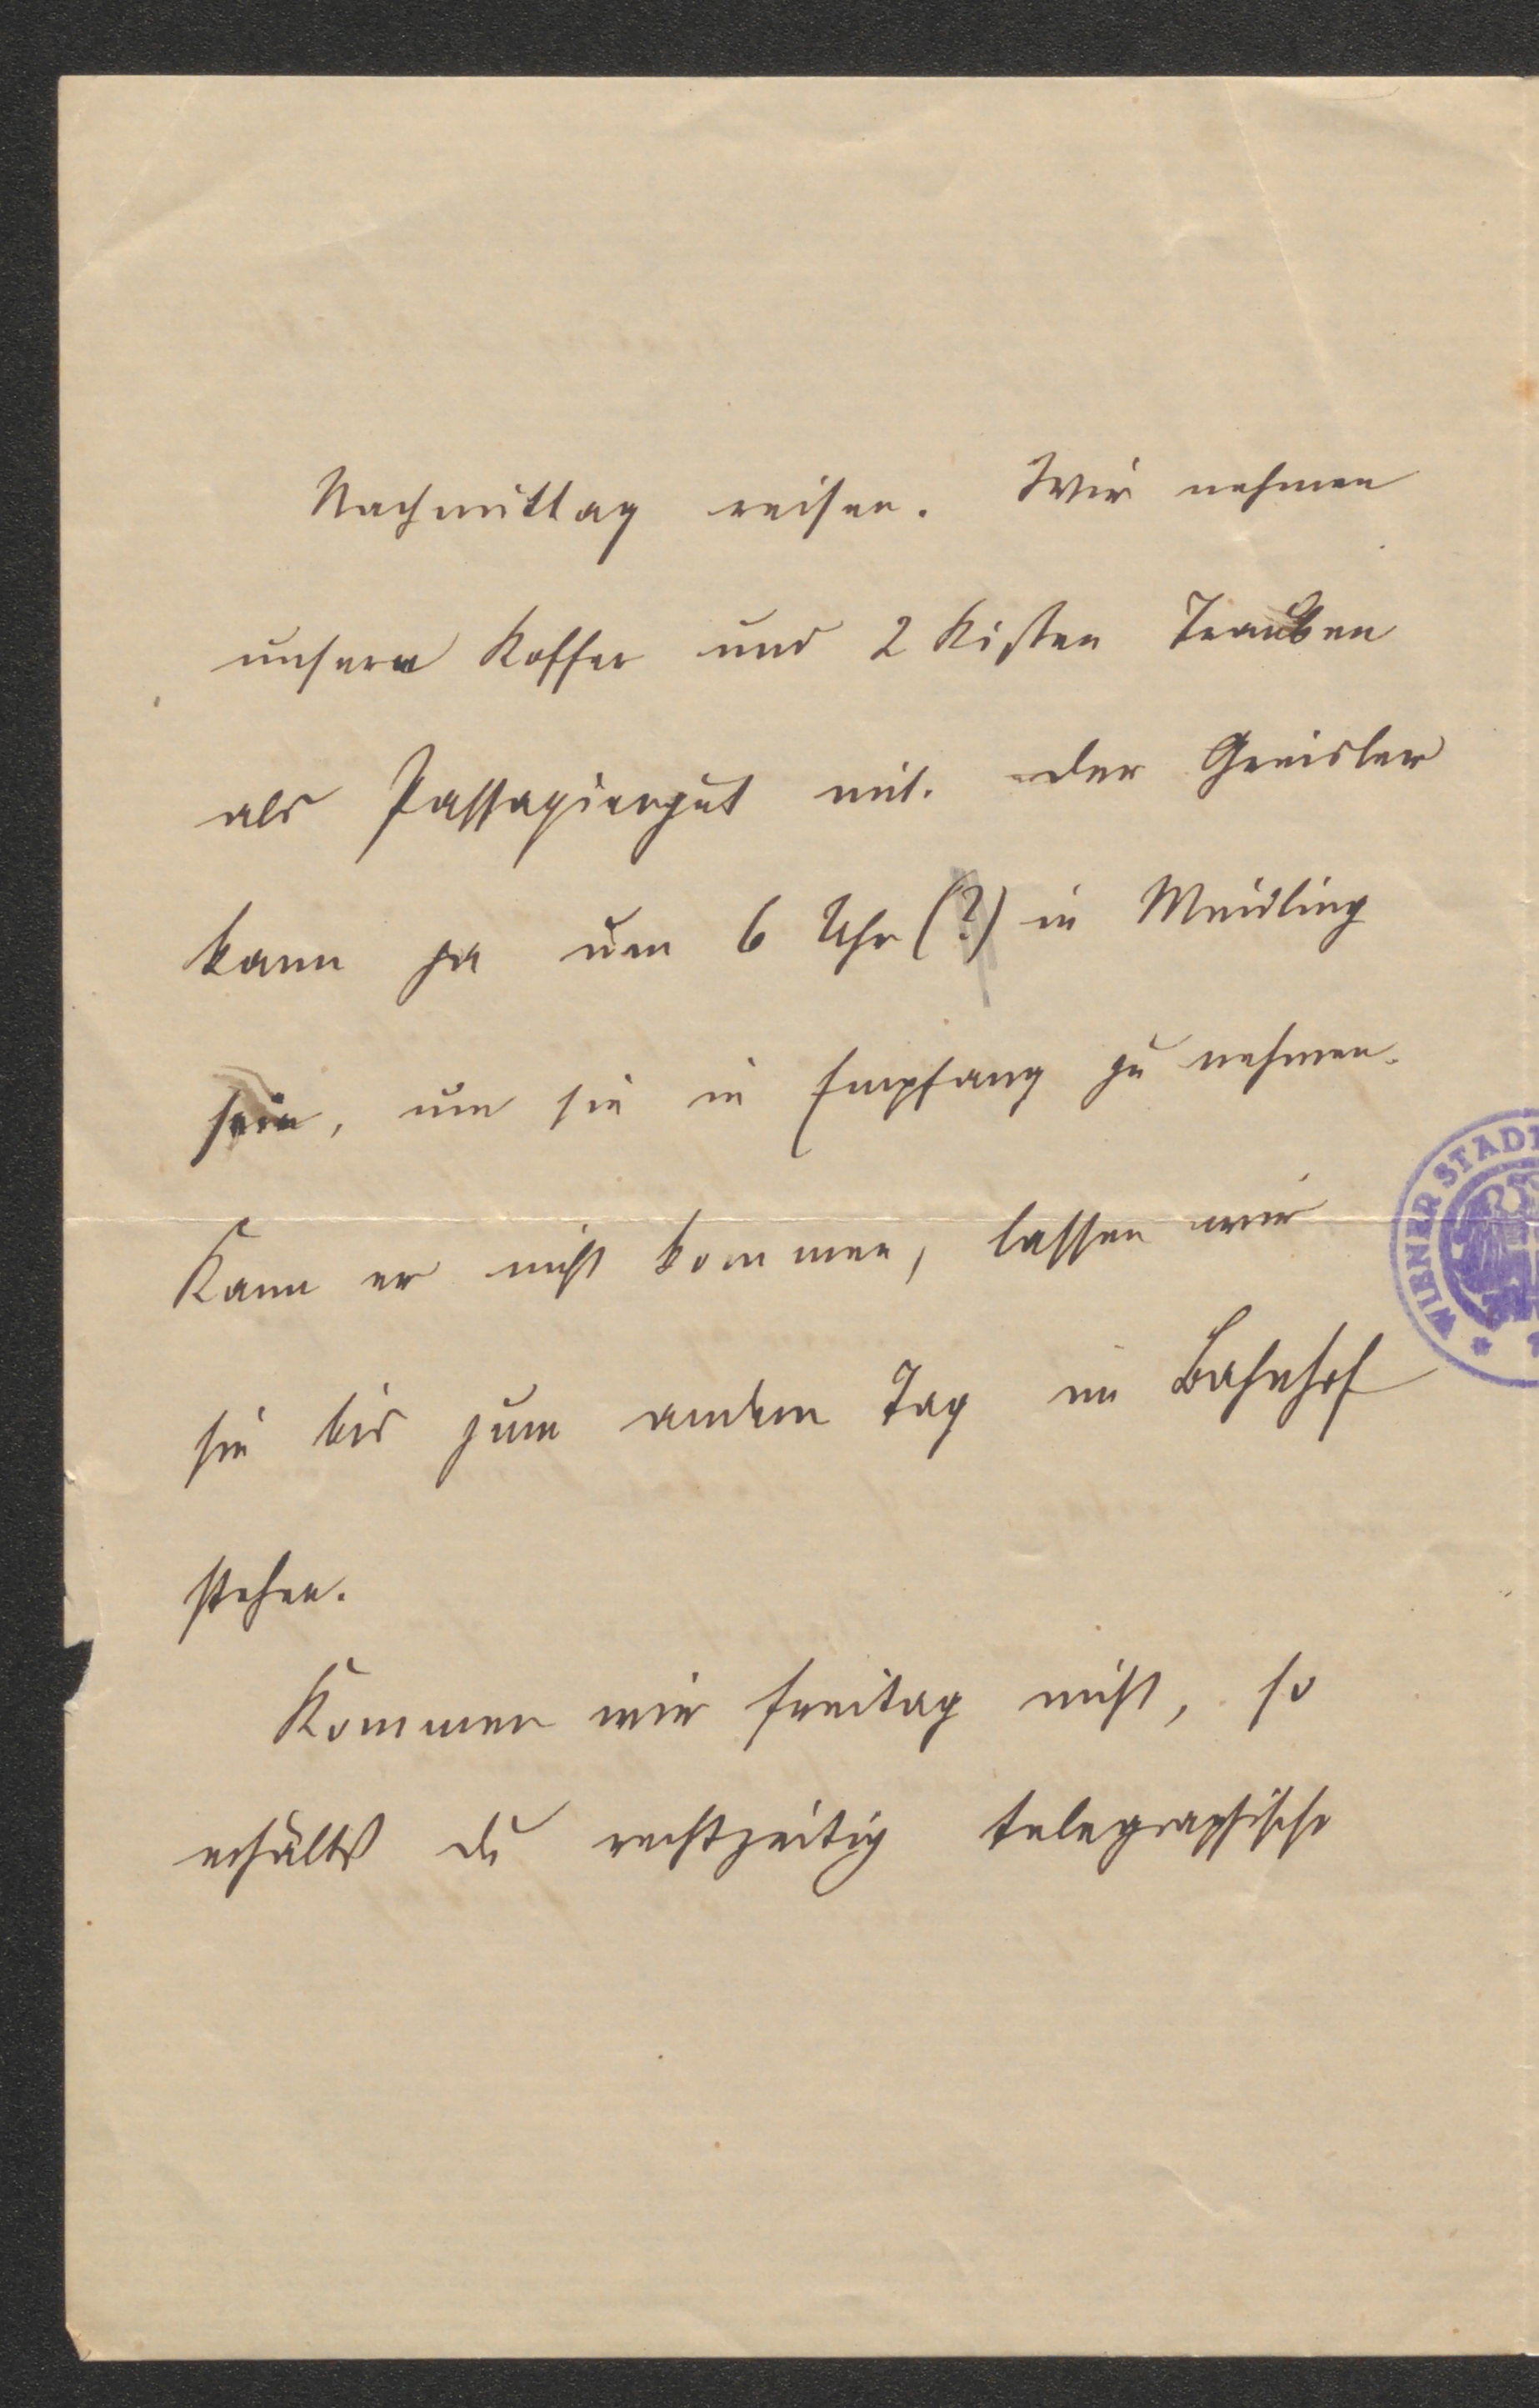 Nachmittag reisen. Wir nehmen
unsern Koffer und 2 Kisten Trauben
als Passagiergut mit. der Greisler
kann ja um 6 Uhr (?) in Meidling
sein, um sie in Empfang zu nehmen.
Kann er nicht kommen, lassen wir
sie bis zum andern Tag im Bahnhof
stehen.
Kommen wir freitag nicht, so
erhältst du rechtzeitig telegraphische
WIENER STADT